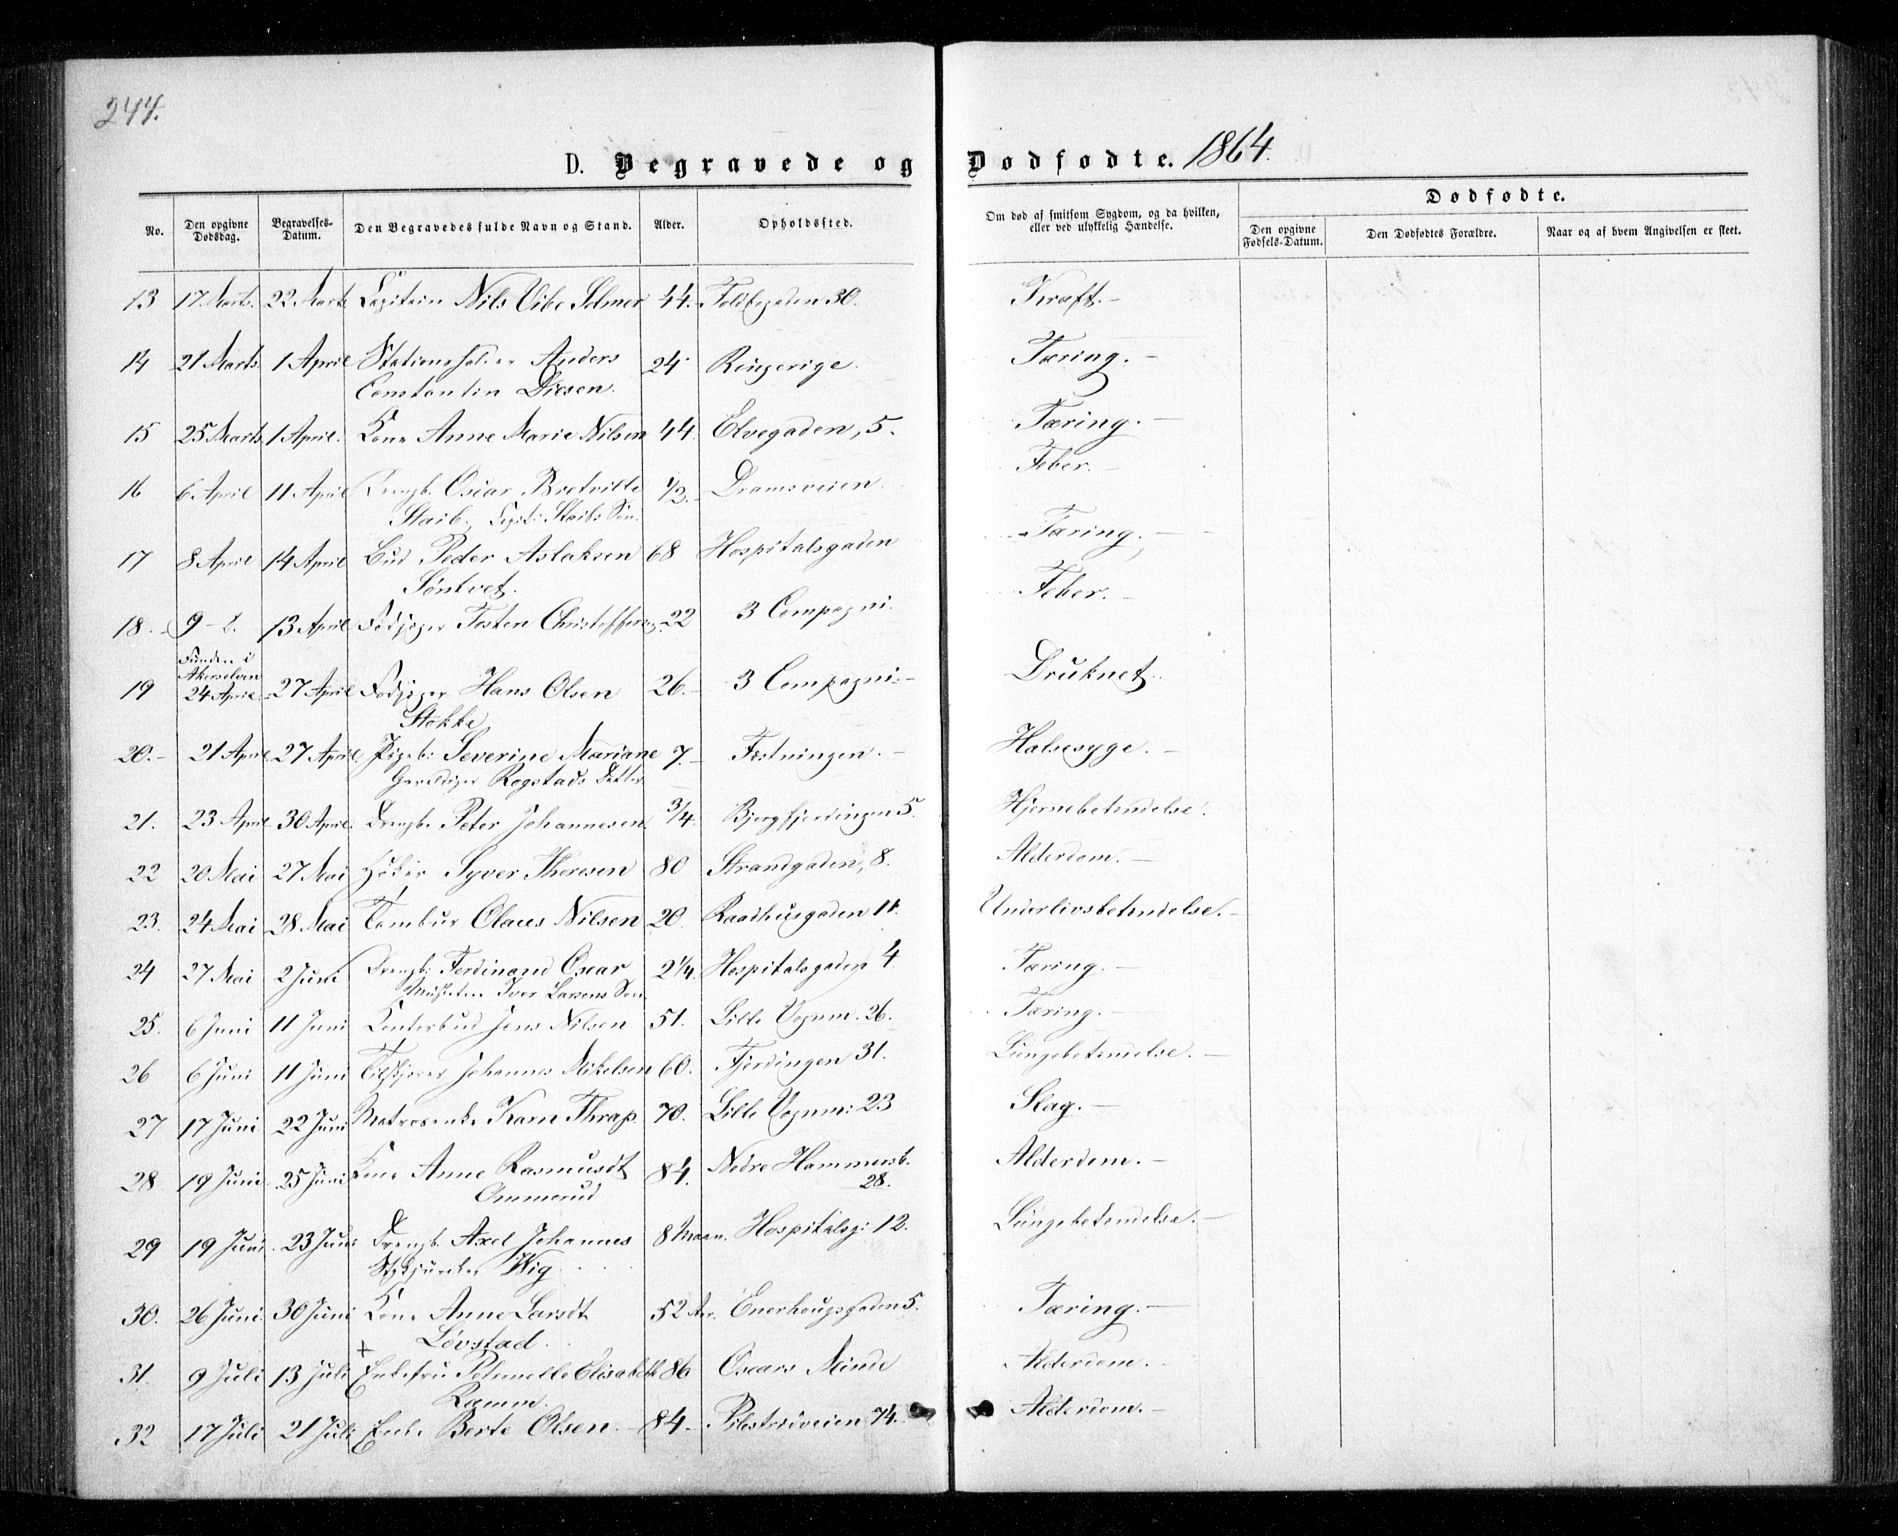 244.
D. Begravede og Dødfødte. 1864.
No. Den opgivne Dødsdag. Begravelses-Datum. Den Begravedes fulde Navn og Stand. Alder. Opholdssted. Om død af smitsom Sygdom, og da hvilken, eller ved ulykkelig Hændelse. Dødfødte.
Den opgivne Fødsels-Datum. Den Dødfødtes Forældre. Naar og af hvem Angivelsen er skeet.
13 17 Marts. 22 Marts Capitain Nils Vibe Selmer 44. Toldbgaden 30. Kræft.
14 21 Marts. 1 April Stationsholder Anders 24 Ringerige. Tæring.
Constantin Diesen.
15 25 Marts 1 April. Kone Anne Marie Nilsen 44 Elvegaden, 5. Tæring.
16 6 April 11 April Drengb. Oscar Bretville 1/2. Dramsveien. Feber.
Staib. Capt: Staibs Søn.
17 8 April 14 April Bud Peder Aslaksen 68 Hospitalsgaden Tæring.
Søntvet.
18. 9 - d. 13 April Fodjæger Tosten Christoffersen 22 3 Compagni. Feber.
Funden i
Akerselven
19 24 April 27 April Fodjæger Hans Olsen 26. 3 Compagni. Druknet.
Stokke
20. 21 April 27 April Pigeb: Severine Mariane 7. Fæstningen. Halsesyge.
Rogstads Datter
21. 23 April 30 April. Drengb. Peter Johannesen 3/4. Bjergfjerdingen 5. Hjernebetendelse.
22 20 Mai 27 Mai Høker Syver Theresen 80 Strandgaden, 8. Alderdom.
23. 24 Mai 28 Mai Tambur Olaus Nilsen 20. Raadhusgaden 11. Underlivsbetendelse.
24 27 Mai 2 Juni Drengb: Ferdinand Oscar 2 1/4. Hospitalsgaden 4 Tæring.
Iver Larsens Søn
25. 6 Juni 11 Juni Kontorbud Jens Nilsen 51. Lille Vognm. 26. Tæring.
26 6 Juni 11 Juni Johannes Mikelsen 60. Fjerdingen 31. Lungebetendelse.
27 17 Juni 22 Juni Matrosenke Karn Thrap. 70. Lille Vognm: 23 Slag.
28 19 Juni 25 Juni Kone Anne Rasmusdt 84. Nedre Hammersb. Alderdom.
Ommerud 28.
29 19 Juni. 23 Juni Drengb. Axel Johannes 8 Maan. Hospitalsg: 12. Lungebetendelse.
Stykjunker Wig
30. 26 Juni. 30 Juni Kone Anne Larsdt 52 Aar. Enerhougsgaden 5. Tæring.
Løvstad.
31. 9 Juli 13 Juli + Enkefru Peternelle Elisabeth 86 Oscars Minde Alderdom.
Ramm.
32 17 Juli 21 Juli Enke Berte Olsen. 84. Pilestredveien 74. Alderdom.